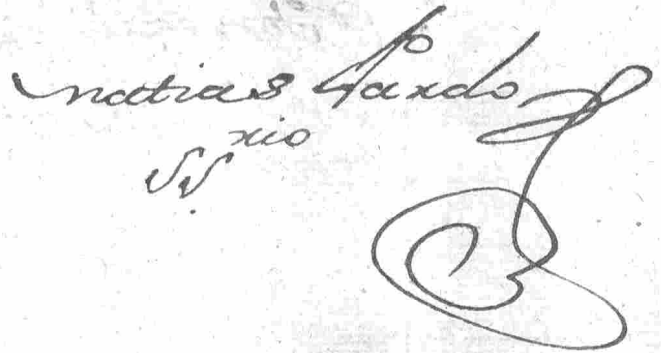 Matias Pardo
rio
SS